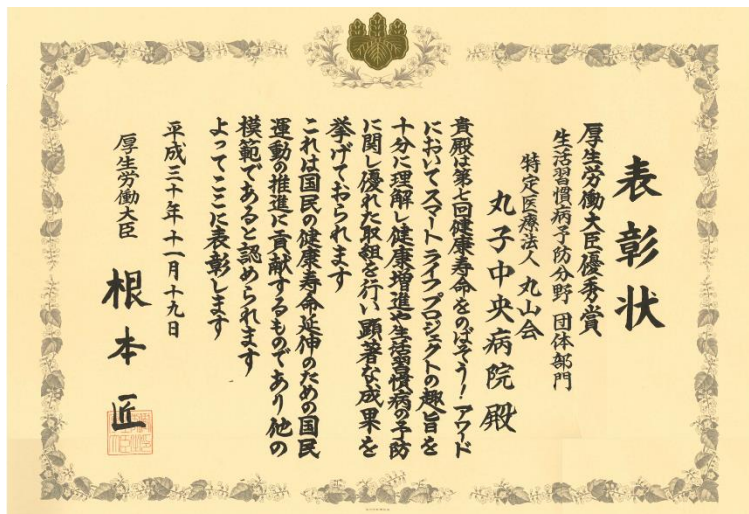 表彰状
厚生労働大臣優秀賞
生活習慣病予防分野 団体部門
特定医療法人 丸山会
丸子中央病院 殿
貴殿は第七回健康寿命をのばそう！アワード
においてスマートライフプロジェクトの趣旨を
十分に理解し健康増進や生活習慣病の予防
に関し優れた取組を行い顕著な成果を
挙げておられます
これは国民の健康寿命延伸のための国民
運動の推進に貢献するものであり他の
模範であると認められます
よってここに表彰します
平成三十年十一月十九日
厚生労働大臣 根本 匠